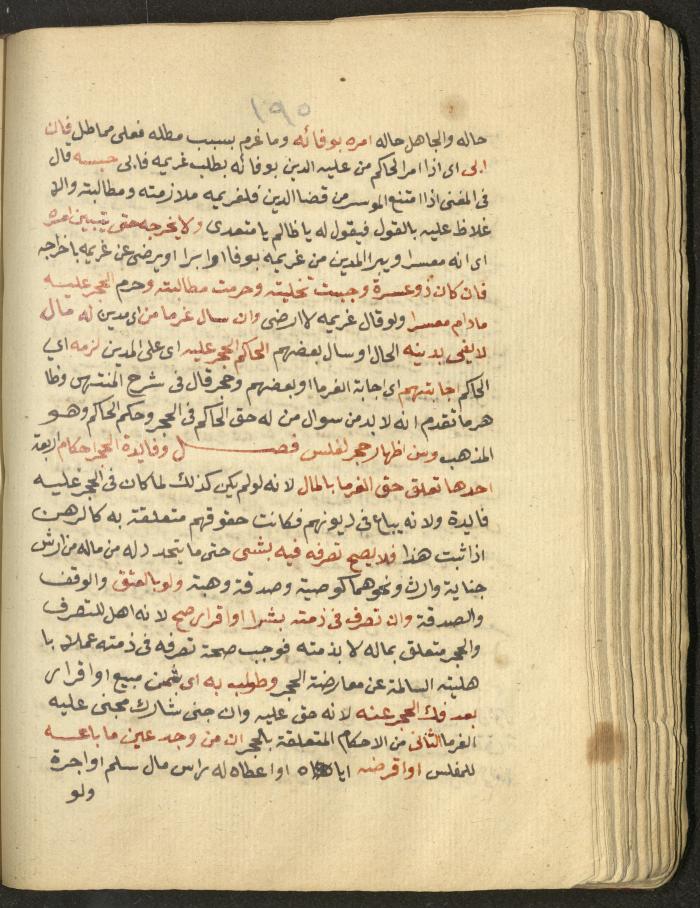 ١٩٥
حاله والجاهل حاله امره بوفائه وما غرم بسبب مطله فعلى مماطل فان
ابى اى اذا امر الحاكم من عليه الدين بوفائه بطلب غريمه فابى حبسه قال
فى المغنى اذا امتنع الموسر من قضا الدين فلغريمه ملازمته ومطالبته والا
غلاظ عليه بالقول فيقول له يا ظالم يا متعدى ولا يخرجه حتى يتبين امره
اى انه معسر او يبرا المدين من غريمه بوفا او ابرا او يرضى عن غريمه باخراجه
فان كان ذو عسرة وجبت تخليته وحرمت مطالبته وحرم الحجر عليه
مادام معسرا ولو قال غريمه لا ارضى وان سال غرما من اى مدين له مال
لا يفى بدينه الحال او سال بعضهم الحاكم الحجر عليه اى على المدين لزمه اى
الحاكم اجابتهم اى اجابة الغرما او بعضهم وحجر قال فى شرح المنتهى وظا
هر ما تقدم انه لا بد من سوال من له حق الحاكم فى الحجر وحكم الحاكم وهو
المذهب وسن اظهار حجر لفلس فصل وفايدة الحجر احكام اربعة
احدها تعلق حق الغرما بالمال لانه لو لم يكن كذلك لما كان فى الحجر عليه
فايدة ولانه يباع فى ديونهم فكانت حقوقهم متعلقة به كالرهن
اذا ثبت هذا فلا يصح تصرفه فيه بشى حتى ما يتجدد له من ماله من ارش
جناية وارث ونحوهما كوصية وصدقة وهبة ولو بالعتق والوقف
والصدقة وان تصرف فى ذمته بشرا او اقرار صح لانه اهل للتصرف
والحجر متعلق بماله لا بذمته فوجب صحة تصرفه فى ذمته عملا با
هليته السالمة عن معارضة الحجر وطولب به اى بثمن مبيع او اقرار
بعد فك الحجر عنه لانه حق عليه وان جنى شارك مجنى عليه
الغرما الثانى من الاحكام المتعلقة بالحجر ان من وجد عين ما باعه
للمفلس او اقرضه اياه او اعطاه له راس مال سلم او اجرة
ولو